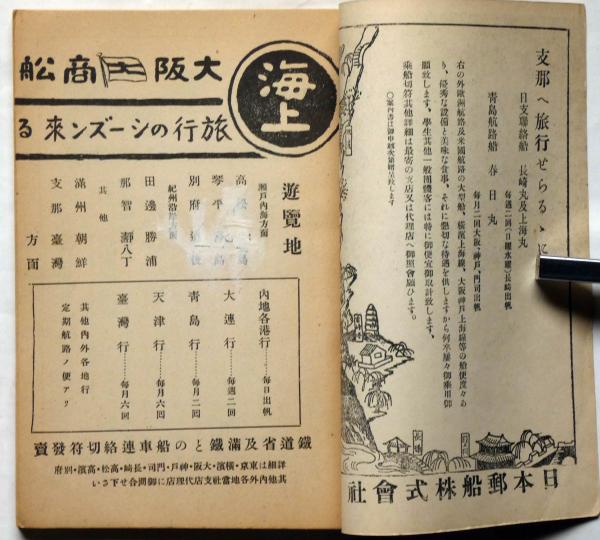 支那へ旅行せらるゝに
日支聯絡船 長崎丸及上海丸
毎週二回(日曜水曜)長崎出帆
青島航路船 春日丸
毎月二回大阪、神戸、門司出帆
右の外歐洲航路及米國航路の大型船、橫濱上海線、大阪神戸上海線等の船便度々あ
り、優秀な設備と美味な食事、それに懇切な待遇を供しますから何卒屢々御乘用御
願致します、學生其他一般團體客には特に御便宜御取計致します、
乘船切符其他詳細は最寄の支店又は代理店へ御照會願ひます。
○案内書は御申越次第贈呈致します
日本郵船株式會社
海上
大阪商船
旅行のシーズン來る
遊覽地
瀨戸内海方面
高松
琴平
別府 道後
紀州沿岸方面
田邊 勝浦
那智 瀞八丁
其他
滿洲 朝鮮
支那 臺灣
方面
内地各港行……毎日出帆
大連行……毎週二回
青島行……毎月二回
天津行……毎月六回
臺灣行……毎月六回
其他内外各地行
定期航路ノ便アリ
鐵道省及滿鐵との船車連絡切符發賣
詳細は東京・橫濱・大阪・神戸・門司・長崎・高松・高濱・別府
其他内外各地當社支店代理店に御問合せ下さい